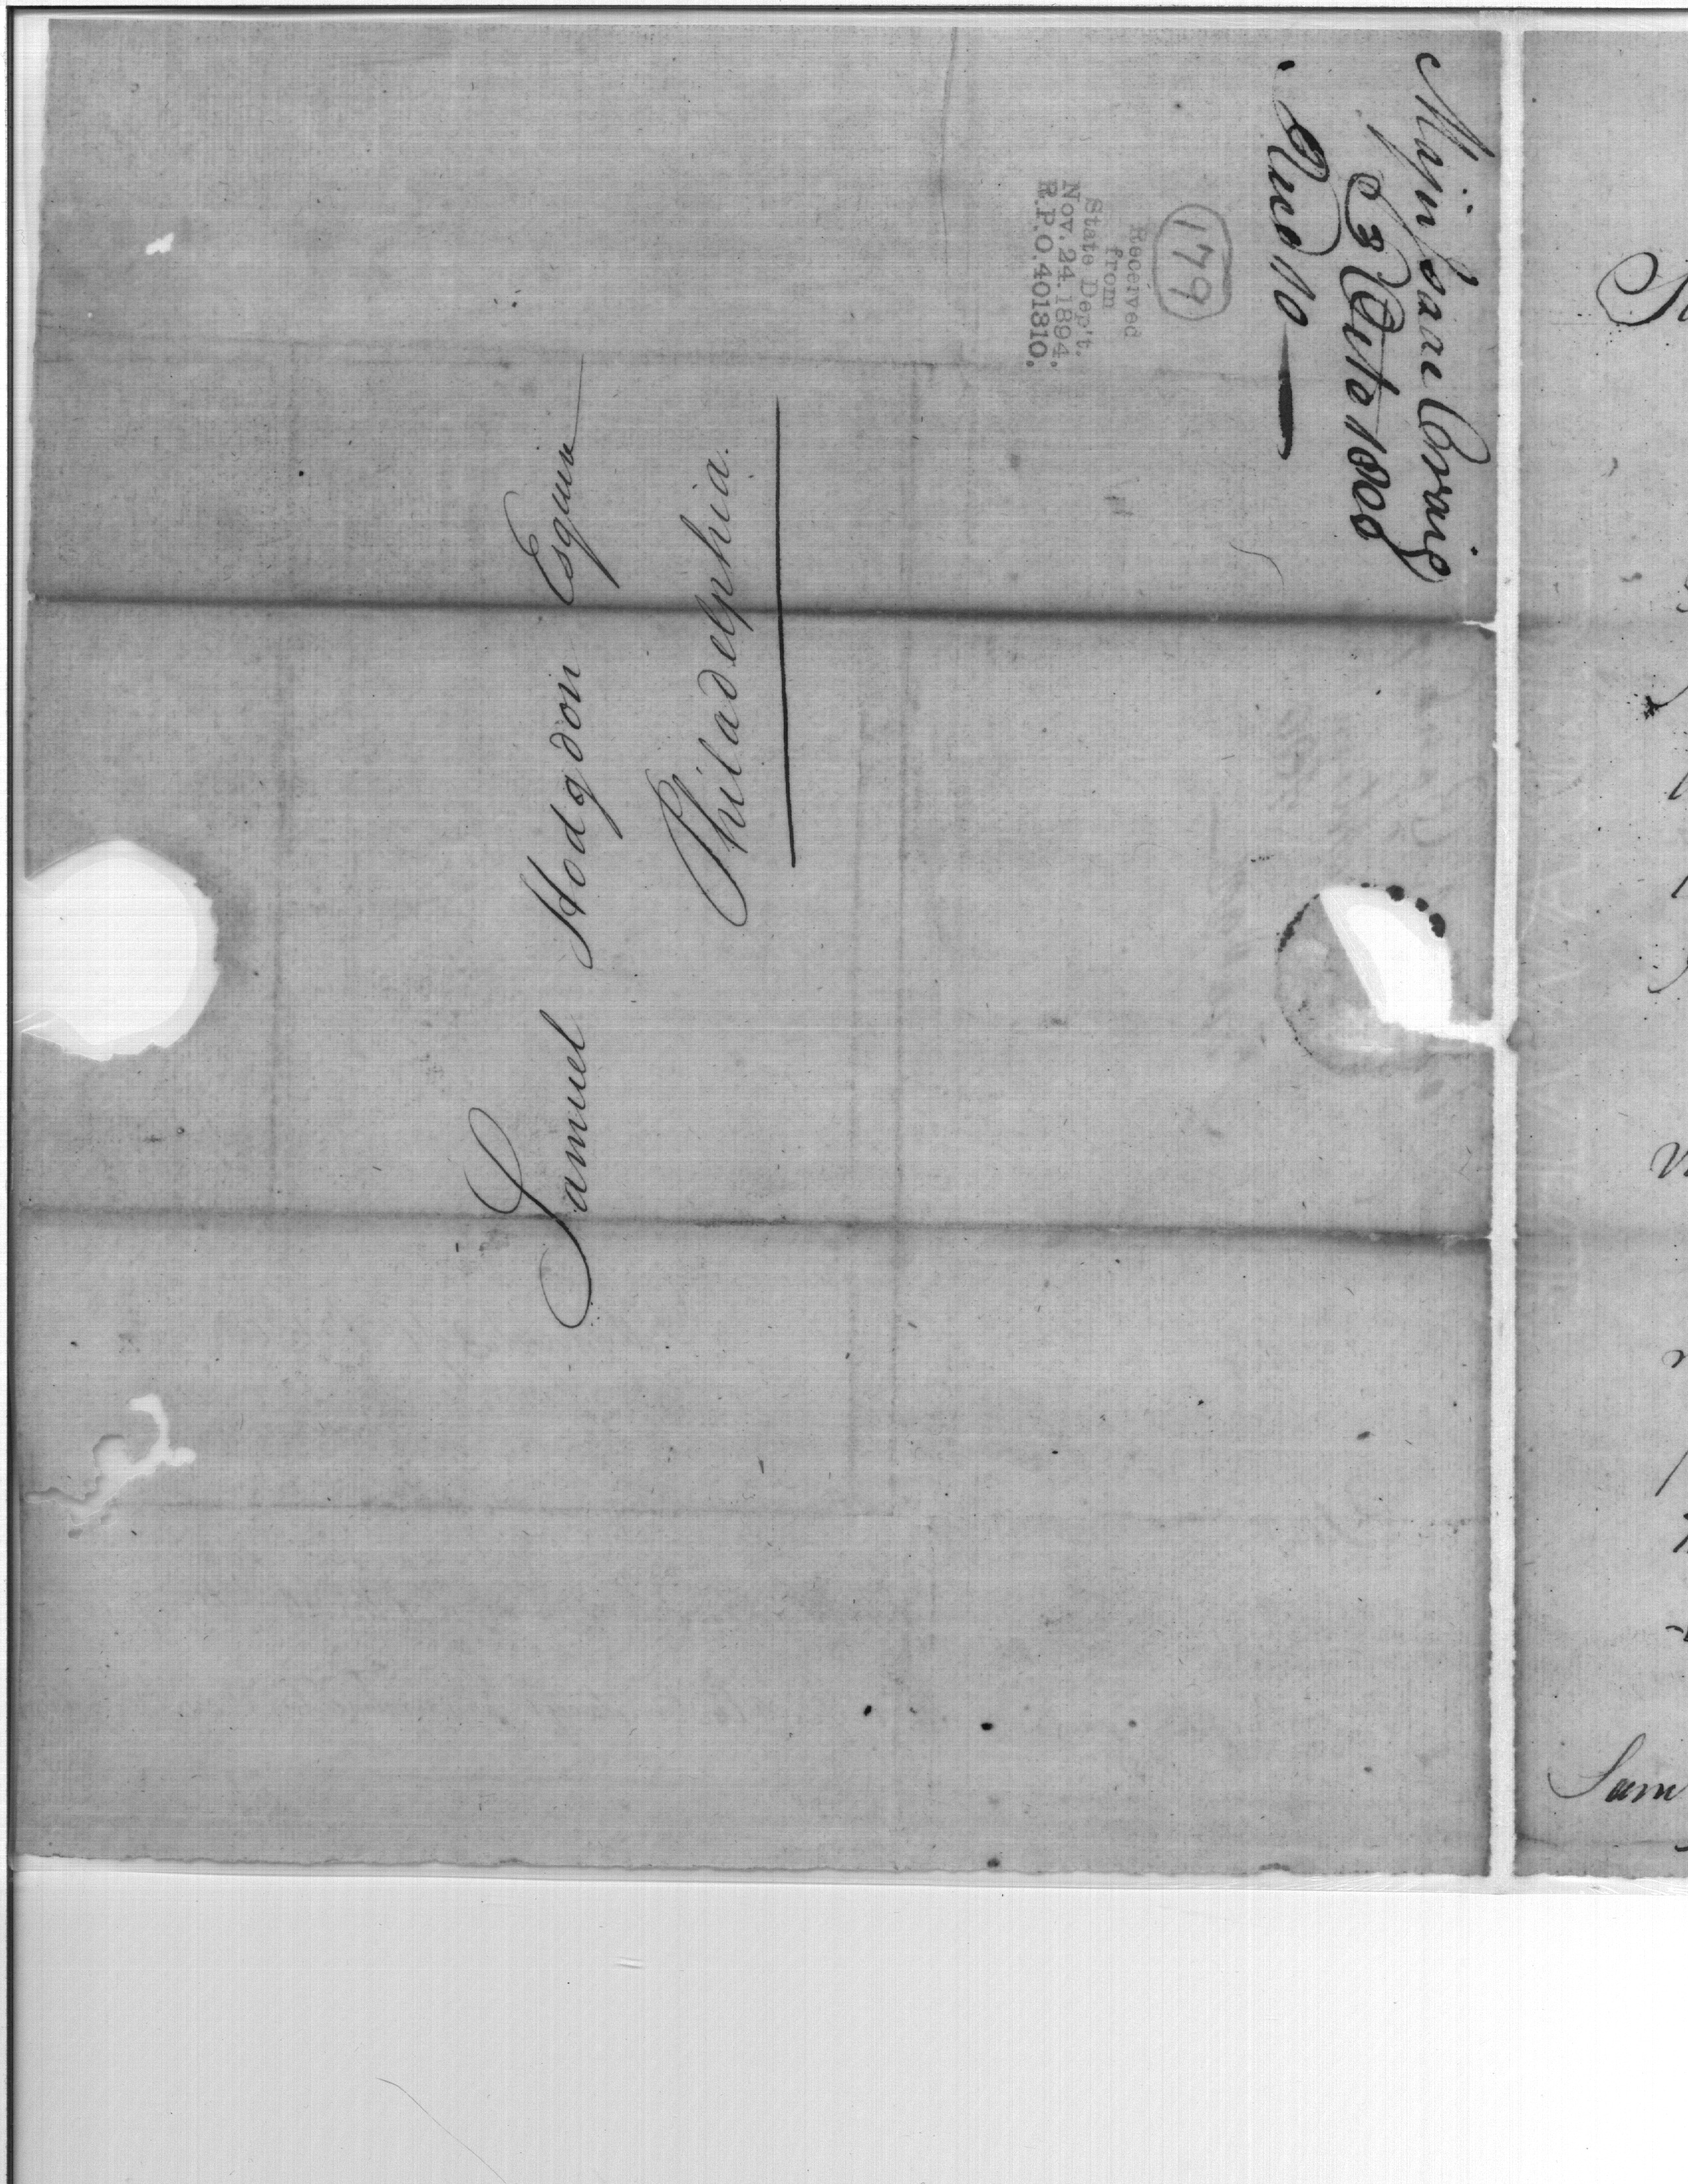 Major Isaac Craig
3 Octo 1800
Recd 10
179
Received
from
State Dep't.
Nov. 24. 1894.
R.P.O. 401310.
Samuel Hodgdon Esquire
Philadelphia.
Sam